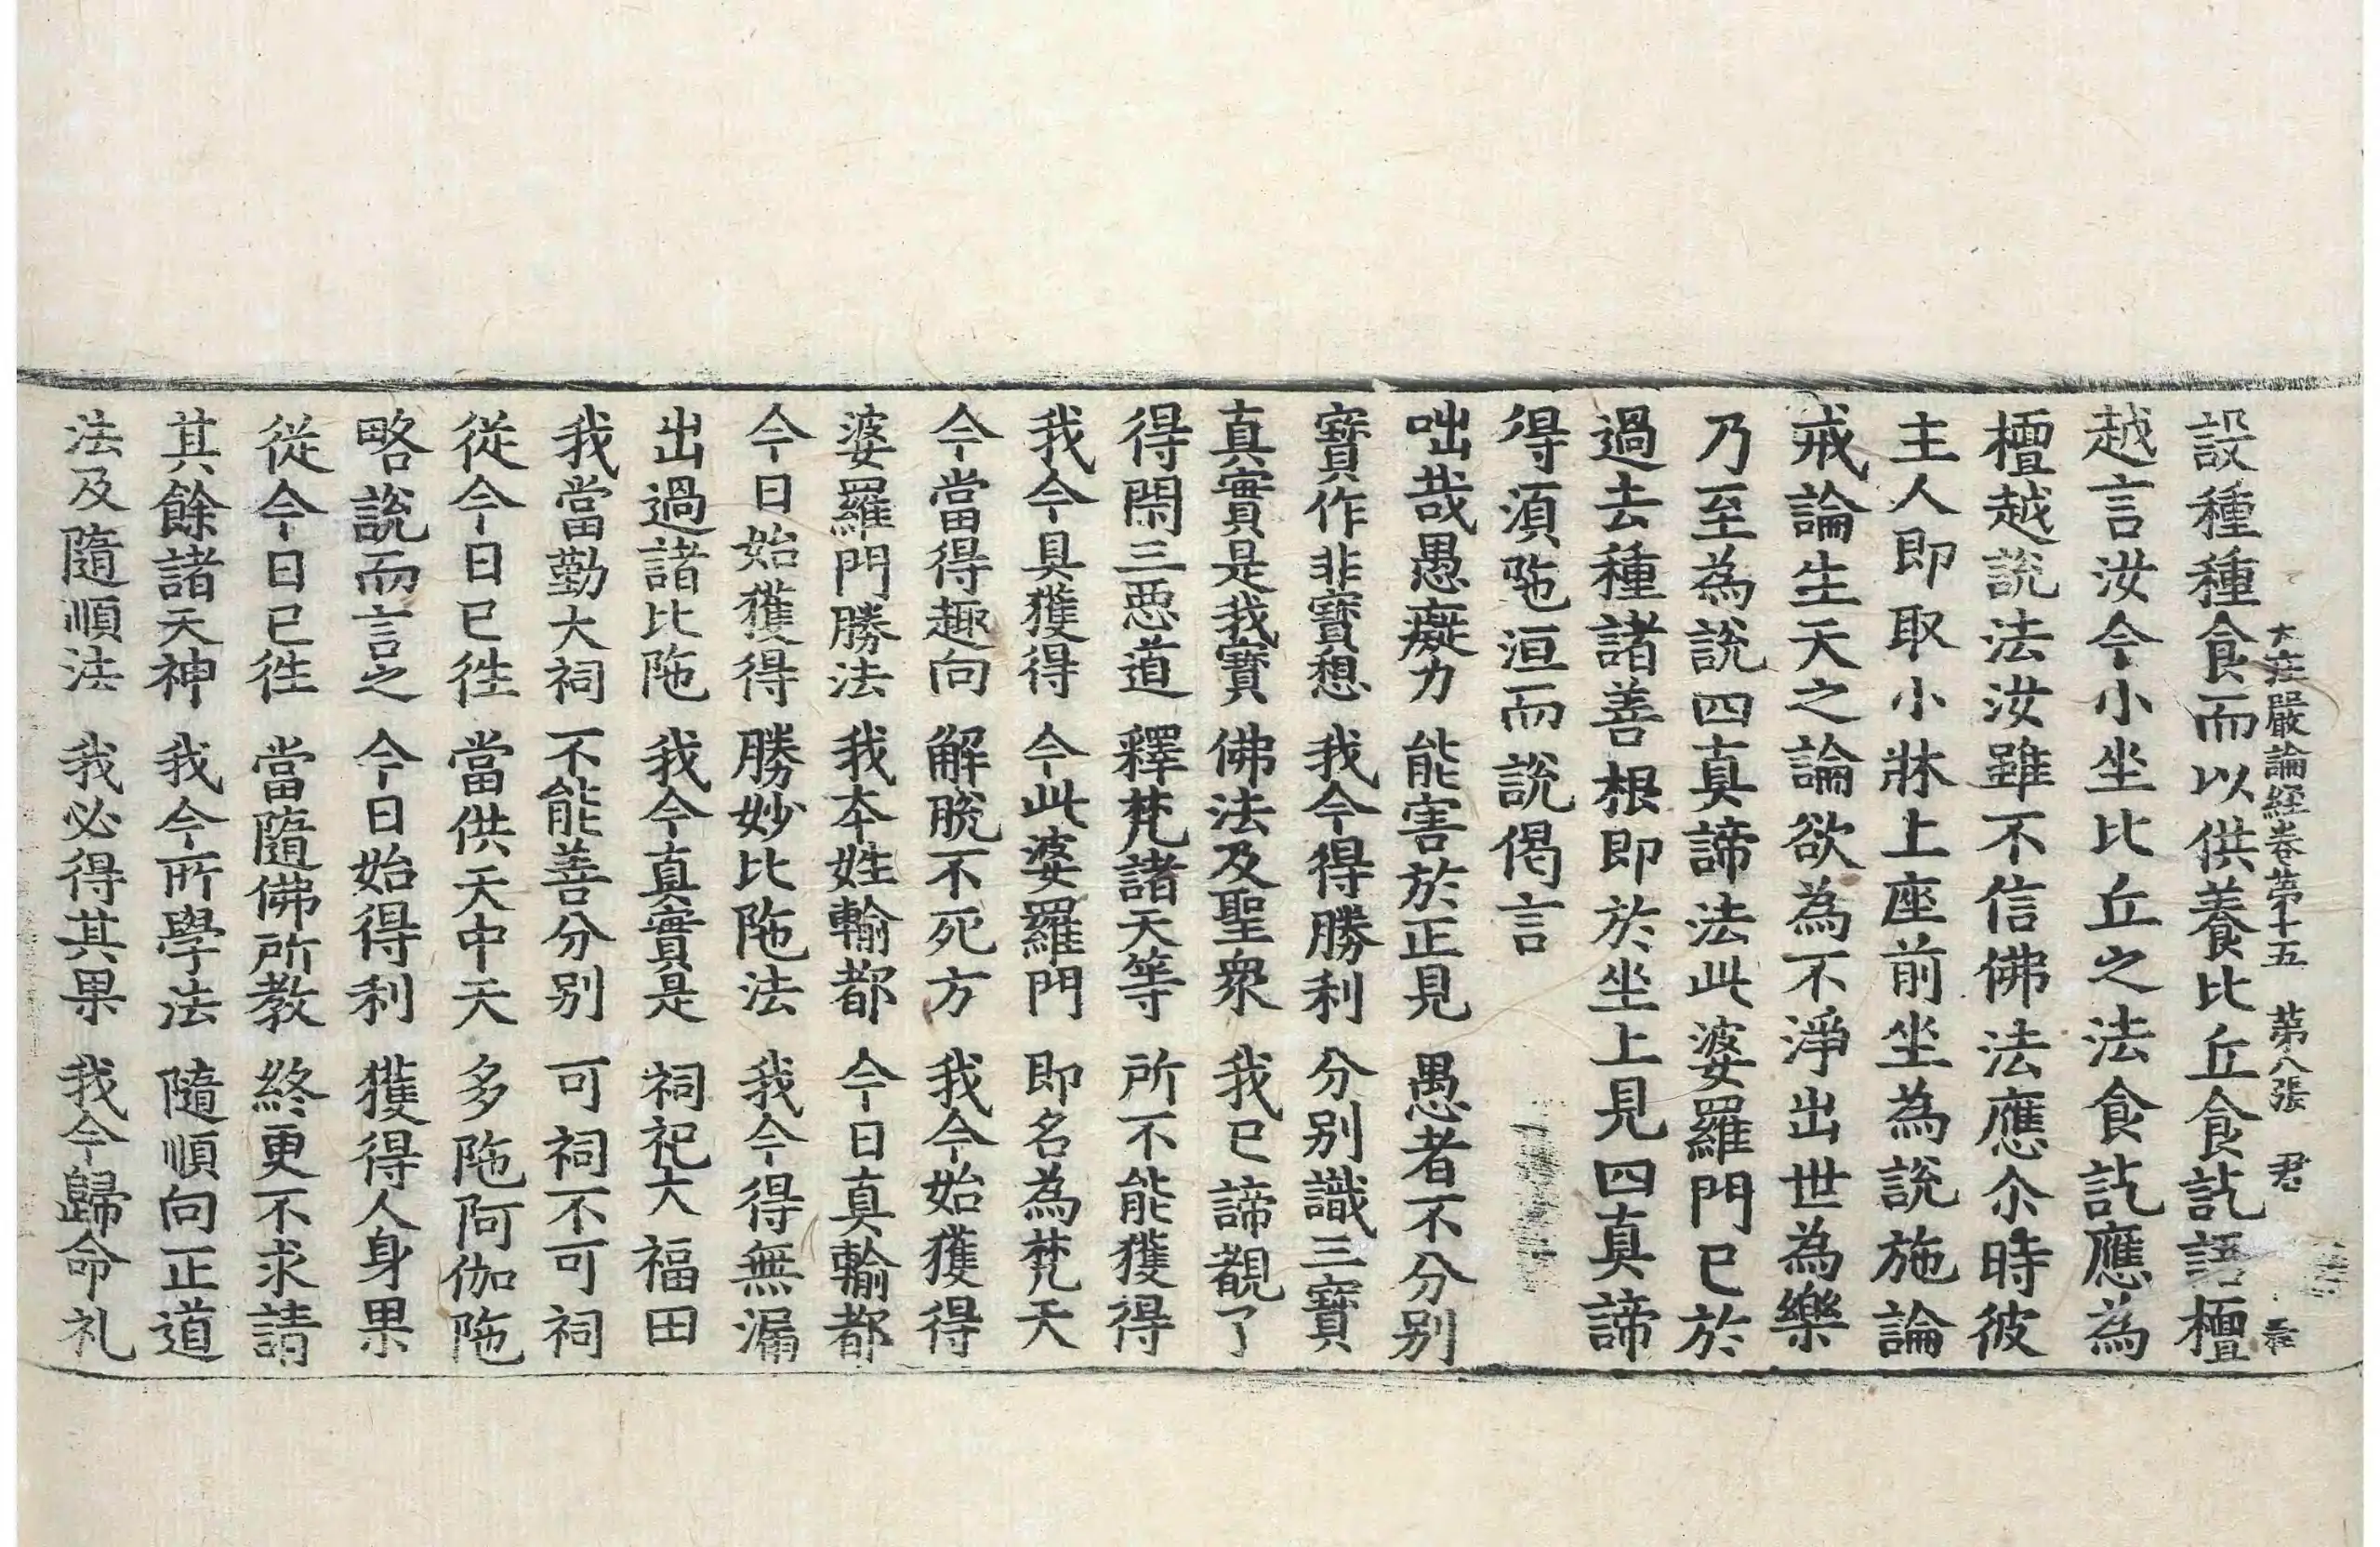 大庄嚴論經卷第十五 第八張 君
設種種食而以供養比丘食訖語檀
越言汝今小坐比丘之法食訖應為
檀越說法汝雖不信佛法應尒時彼
主人即取小牀上座前坐為說施論
戒論生天之論欲為不淨出世為樂
乃至為說四真諦法此婆羅門已於
過去種諸善根即於坐上見四真諦
得須陁洹而說偈言
咄哉愚癡力 能害於正見 愚者不分別
寶作非寶想 我今得勝利 分別識三寶
真實是我寶 佛法及聖眾 我已諦覩了
得閇三惡道 釋梵諸天等 所不能獲得
我今具獲得 今此婆羅門 即名為梵天
今當得趣向 解脫不死方 我今始獲得
婆羅門勝法 我本姓輸都 今日真輸都
今日始獲得 勝妙比陁法 我今得無漏
出過諸比陁 我今真實是 祠祀大福田
我當勤大祠 不能善分別 可祠不可祠
從今日已徃 當供天中天 多陁阿伽陁
略說而言之 今日始得利 獲得人身果
從今日已徃 當隨佛所教 終更不求請
其餘諸天神 我今所學法 隨順向正道
法及隨順法 我必得其果 我今歸命礼